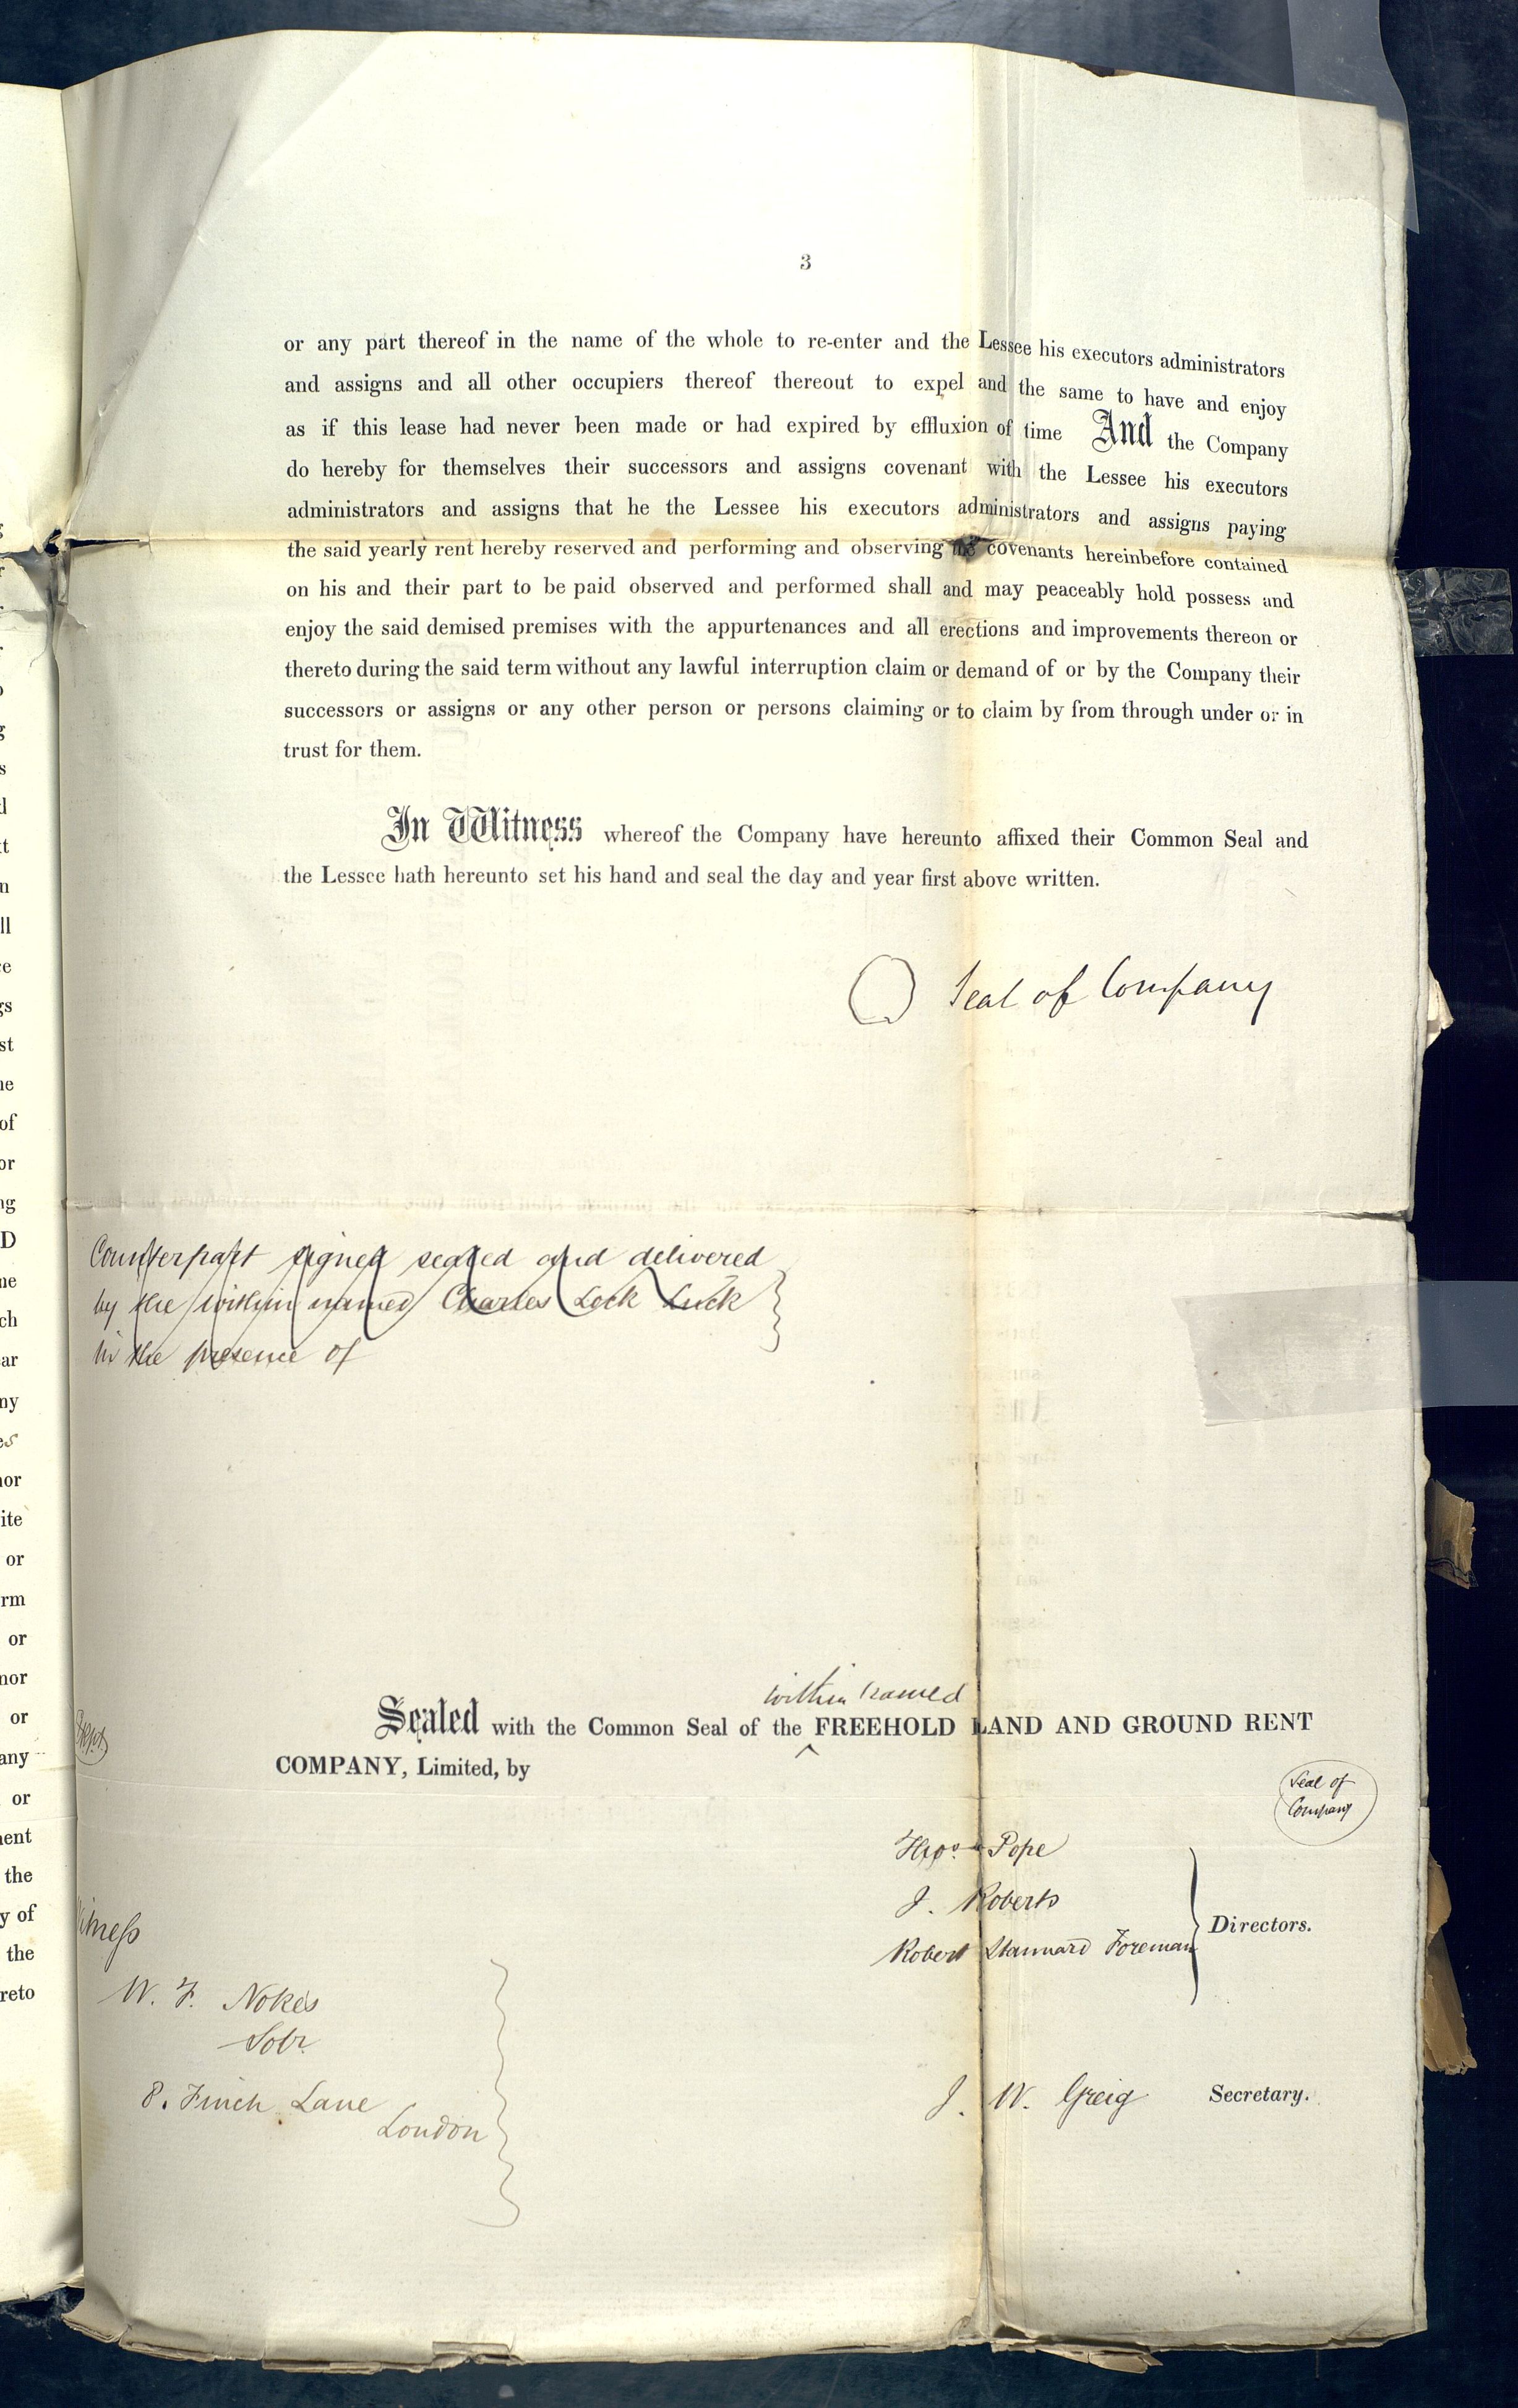 3
or any part thereof in the name of the whole to re-enter and the Lessee his executors administrators
and assigns and all other occupiers thereof thereout to expel and the same to have and enjoy
as if this lease had never been made or had expired by effluxion of time And the Company
do hereby for themselves their successors and assigns covenant with the Lessee his executors
administrators and assigns that he the Lessee his executors administrators and assigns paying
the said yearly rent hereby reserved and performing and observing the covenants hereinbefore contained
on his and their part to be paid observed and performed shall and may peaceably hold possess and
enjoy the said demised premises with the appurtenances and all erections and improvements thereon or
thereto during the said term without any lawful interruption claim or demand of or by the Company their
successors or assigns or any other person or persons claiming or to claim by from through under or in
trust for them.
In Witness whereof the Company have hereunto affixed their Common Seal and
the Lessee hath hereunto set his hand and seal the day and year first above written.
Seal of Company
Counterpart signed sealed and delivered
by the within named Charles Lock Luck
in the presence of
within named
Sealed with the Common Seal of the FREEHOLD LAND AND GROUND RENT
COMPANY, Limited, by
Seal of
Company
Thos. Pope
J. Roberts
Robert Stannard Foreman
Directors.
W. F. Nokes
Solr.
8. Finch Lane
London
J. W. Greig Secretary.